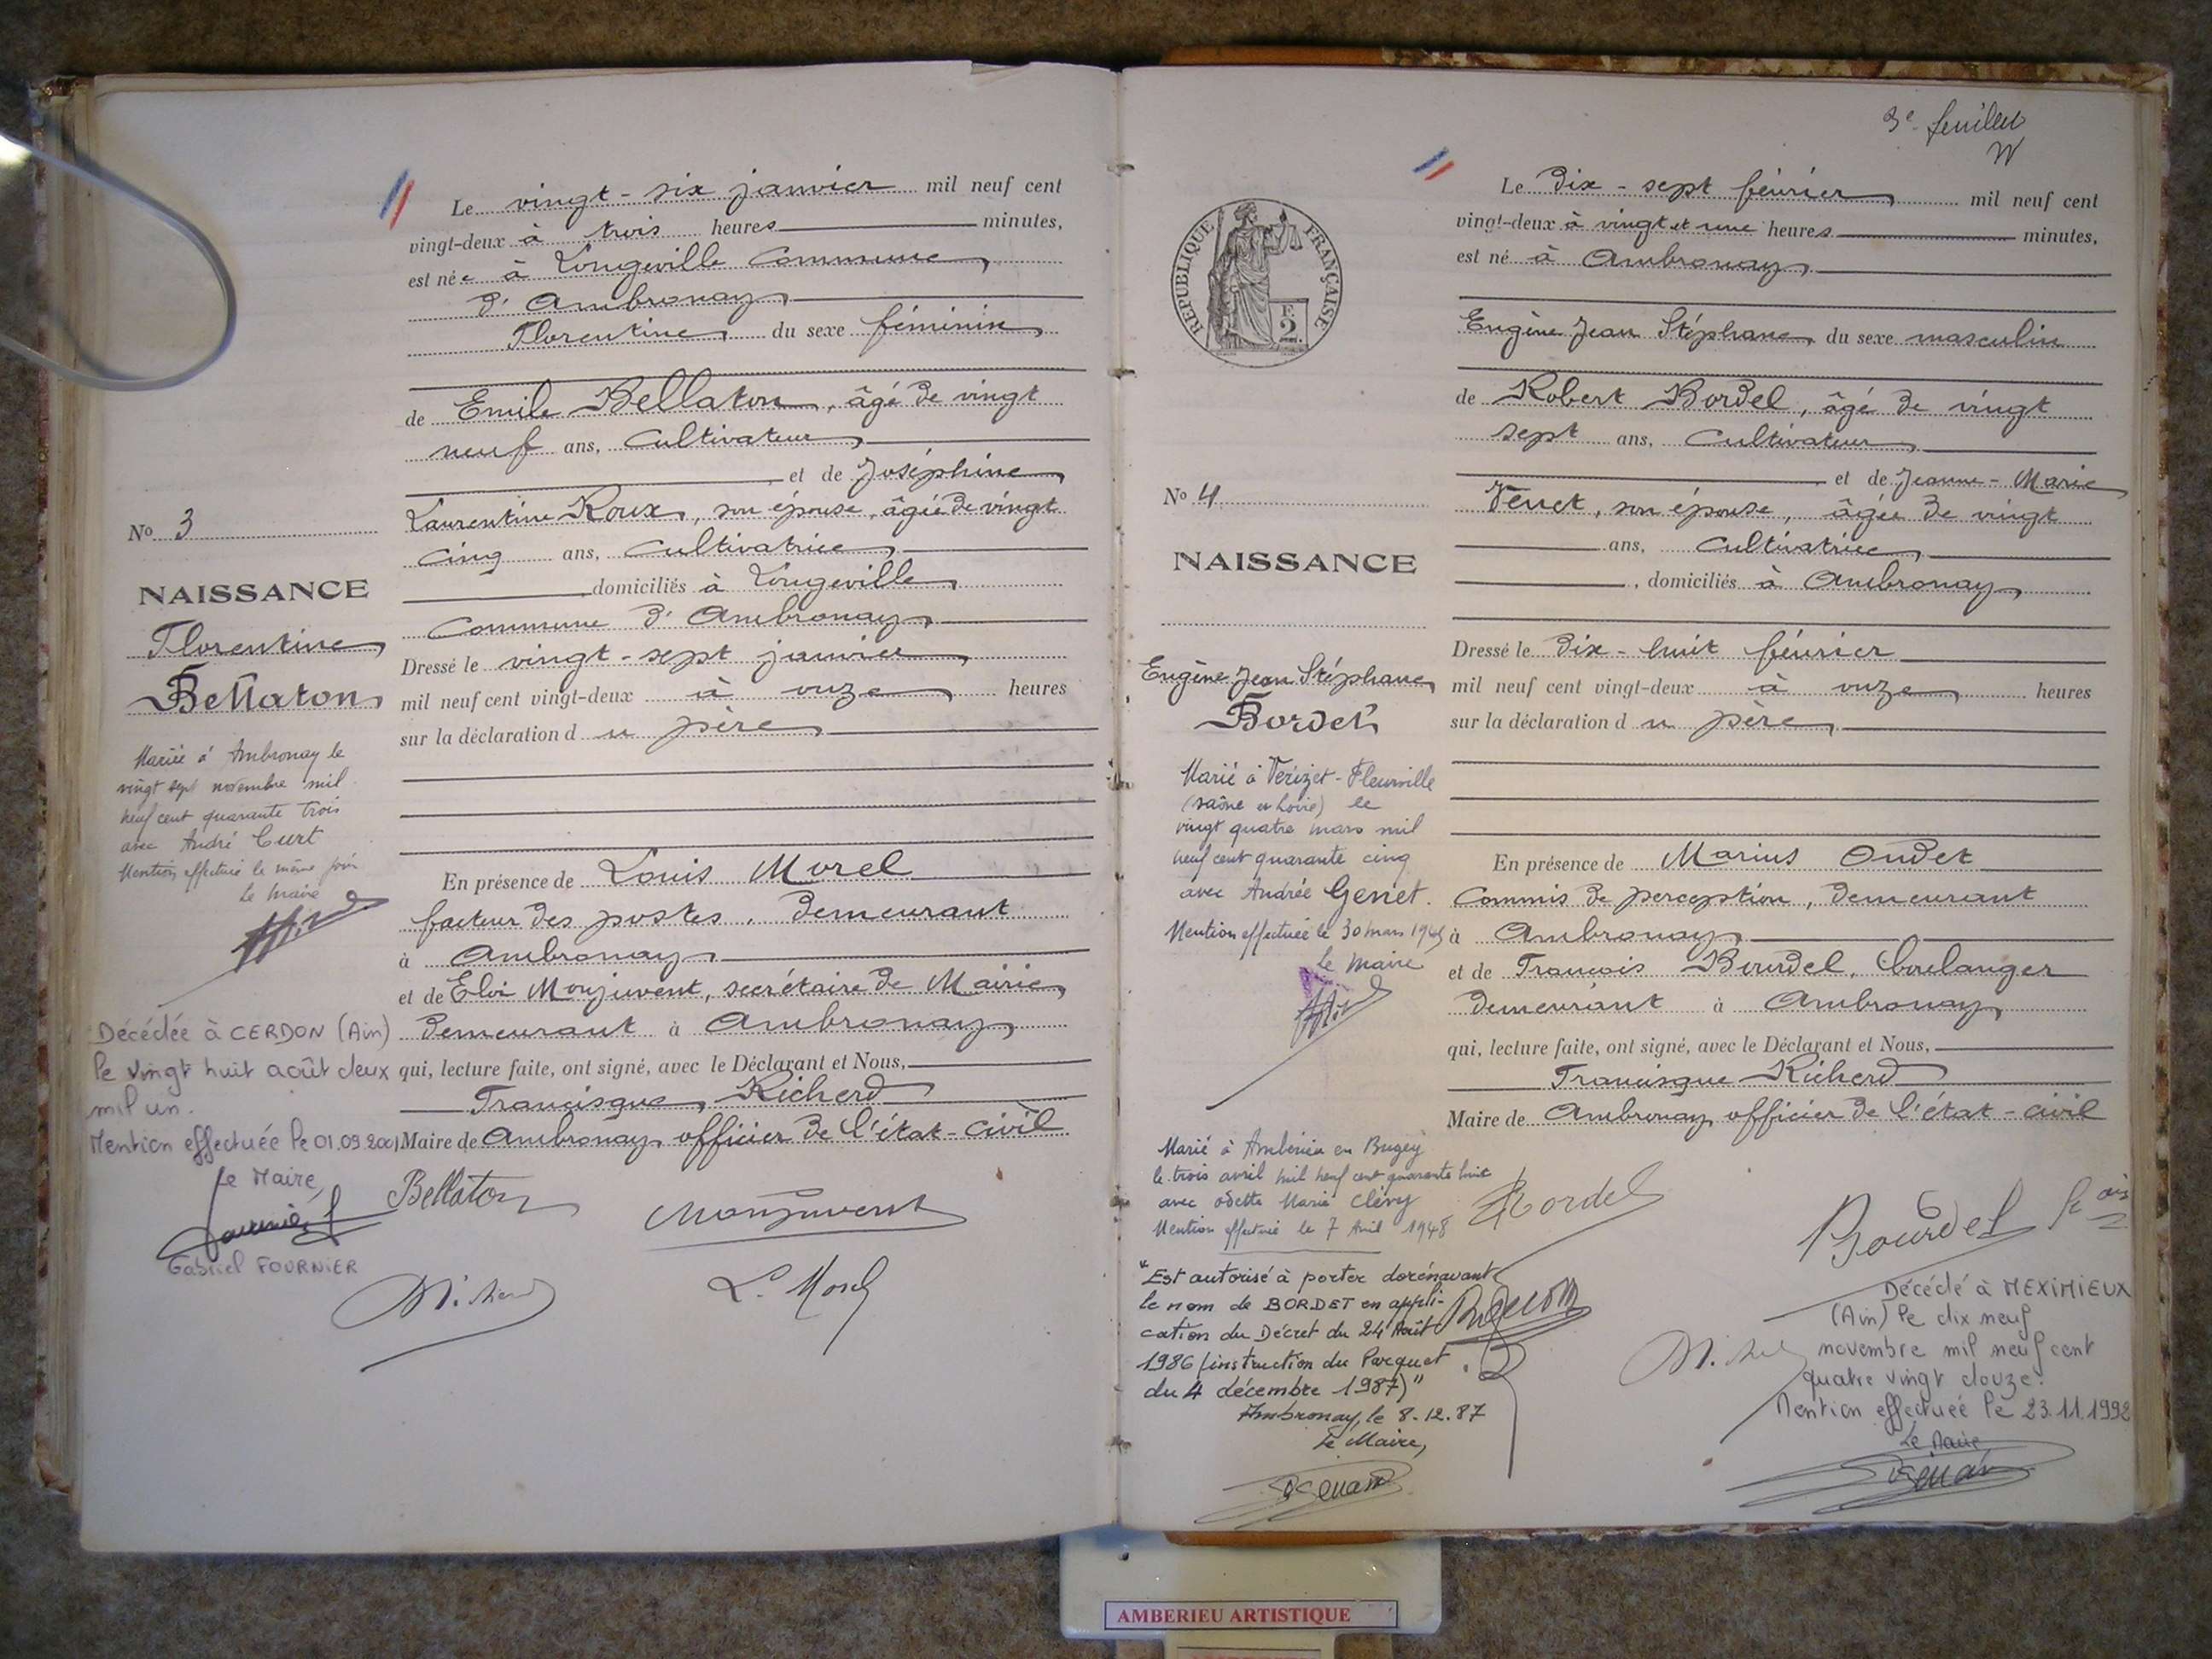 Le vingt-six janvier mil neuf cent
vingt-deux à trois heures minutes,
est née à Longeville Commune
d'Ambronay
Florentine du sexe féminin
de Emile Bellaton, âgé de vingt
neuf ans, Cultivateur
et de Joséphine
Laurentine Roux, son épouse, âgée de vingt
Cinq ans, Cultivatrice
domiciliés à Longeville
Commune d'Ambronay
Dressé le vingt-sept janvier
mil neuf cent vingt-deux à onze heures
sur la déclaration du père
En présence de Louis Morel
facteur des postes, demeurant
à Ambronay
et de Eloi Monjuvent, secrétaire de Mairie,
demeurant à Ambronay
qui, lecture faite, ont signé, avec le Déclarant et Nous,
Francisque Richerd
Maire de Ambronay officier de l'état-civil
Bellaton
Monjuvent
L. Morel
No 3
NAISSANCE
Florentine
Bellaton
Mariée à Ambronay le
vingt sept novembre mil
neuf cent quarante trois
avec André Curt
Mention effectuée le même jour
Le Maire
Décédée à CERDON (Ain)
le vingt huit août deux
mil un.
Mention effectuée le 01.09.2001
Le Maire,
Gabriel FOURNIER
3e feuillet
REPUBLIQUE FRANÇAISE
F.
2
No 4
NAISSANCE
Eugène Jean Stéphane
Bordet
Marié à Vérizet-Fleurville
(Saône et Loire) le
vingt quatre mars mil
neuf cent quarante cinq
avec Andrée Genet.
Mention effectuée le 30 mars 1945
Le Maire
Marié à Ambérieu en Bugey
le trois avril mil neuf cent quarante huit
avec Odette Marie Clévy
Mention effectuée le 7 Avril 1948
"Est autorisé à porter dorénavant
le nom de BORDET en appli-
cation du Décret du 24 Août
1986 (instruction du Parquet
du 4 décembre 1987)"
Ambronay, le 8.12.87
Le Maire,
Le Dix-sept février mil neuf cent
vingt-deux à vingt et une heures minutes,
est né à Ambronay
Eugène Jean Stéphane du sexe masculin
de Robert Bordel, âgé de vingt
sept ans, Cultivateur
et de Jeanne-Marie
Venet, son épouse, âgée de vingt
ans, Cultivatrice
, domiciliés à Ambronay
Dressé le Dix-huit février
mil neuf cent vingt-deux à onze heures
sur la déclaration du père
En présence de Marius Oudet
Commis de perception, demeurant
à Ambronay
et de François Bourdel, boulanger
demeurant à Ambronay
qui, lecture faite, ont signé, avec le Déclarant et Nous,
Francisque Richerd
Maire de Ambronay officier de l'état-civil
Bordel
Bourdel Fçois
Décédé à MEXIMIEUX
(Ain) le dix neuf
novembre mil neuf cent
quatre vingt douze.
Mention effectuée le 23.11.1992
Le Maire
AMBERIEU ARTISTIQUE